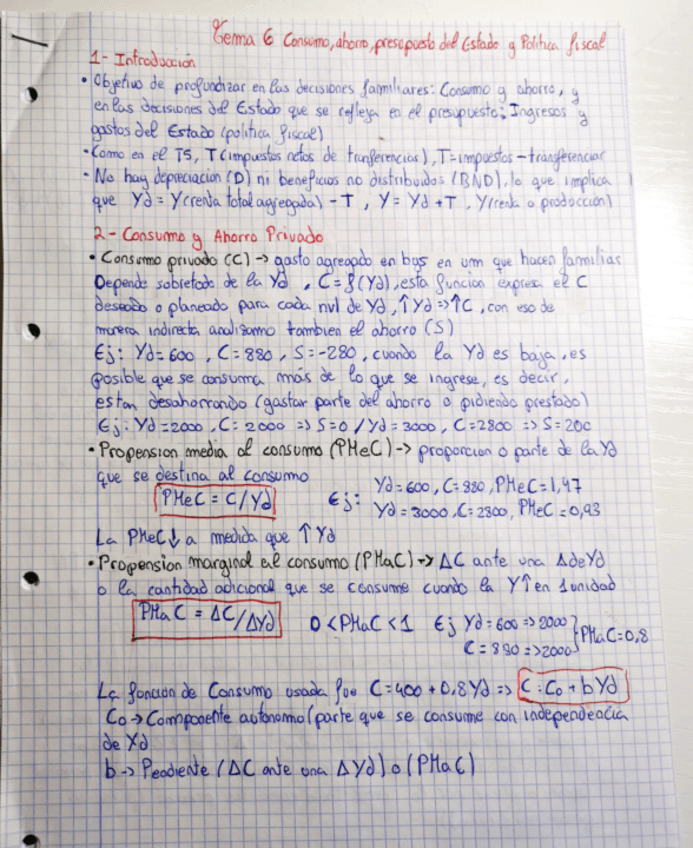 Tema 6 Consumo, ahorro, presupuesto del Estado y Política fiscal
1- Introducción
• Objetivo de profundizar en las decisiones familiares: Consumo y ahorro, y
en las decisiones del Estado que se refleja en el presupuesto; Ingresos y
gastos del Estado (política fiscal)
• Como en el T5, T (impuestos netos de tranferencias), T= impuestos - transferencias
• No hay depreciación (D) ni beneficios no distribuidos (BND), lo que implica
que Yd = Y (renta total agregada) - T , Y = Yd + T , Y (renta o producción)
2- Consumo y Ahorro Privado
• Consumo privado (C) -> gasto agregado en bys en um que hacen familias
Depende sobretodo de la Yd , C = f(Yd), esta función expresa el C
deseado o planeado para cada nvl de Yd, ↑Yd => ↑C , con eso de
manera indirecta analizamo tambien el ahorro (S)
Ej: Yd = 600 , C = 880 , S = -280 , cuando la Yd es baja, es
posible que se consuma más de lo que se ingrese, es decir,
estan desahorrando (gastar parte del ahorro o pidiendo prestado)
Ej: Yd = 2000 , C = 2000 => S = 0 / Yd = 3000 , C = 2800 => S = 200
• Propension media al consumo (PMeC) -> proporcion o parte de la Yd
que se destina al consumo
PMeC = C/Yd
Ej: Yd = 600 , C = 880 , PMeC = 1,47
Yd = 3000 , C = 2800 , PMeC = 0,93
La PMeC ↓ a medida que ↑ Yd
• Propension marginal al consumo (PMaC) -> ΔC ante una Δ de Yd
o la cantidad adicional que se consume cuando la Y↑ en 1 unidad
PMaC = ΔC/ΔYd 0 < PMaC < 1 Ej Yd = 600 => 2000 } PMaC = 0,8
C = 880 => 2000
La función de Consumo usada fue C = 400 + 0,8 Yd => C = Co + b Yd
Co -> Componente autonomo (parte que se consume con independencia
de Yd
b -> Pendiente (ΔC ante una ΔYd) o (PMaC)